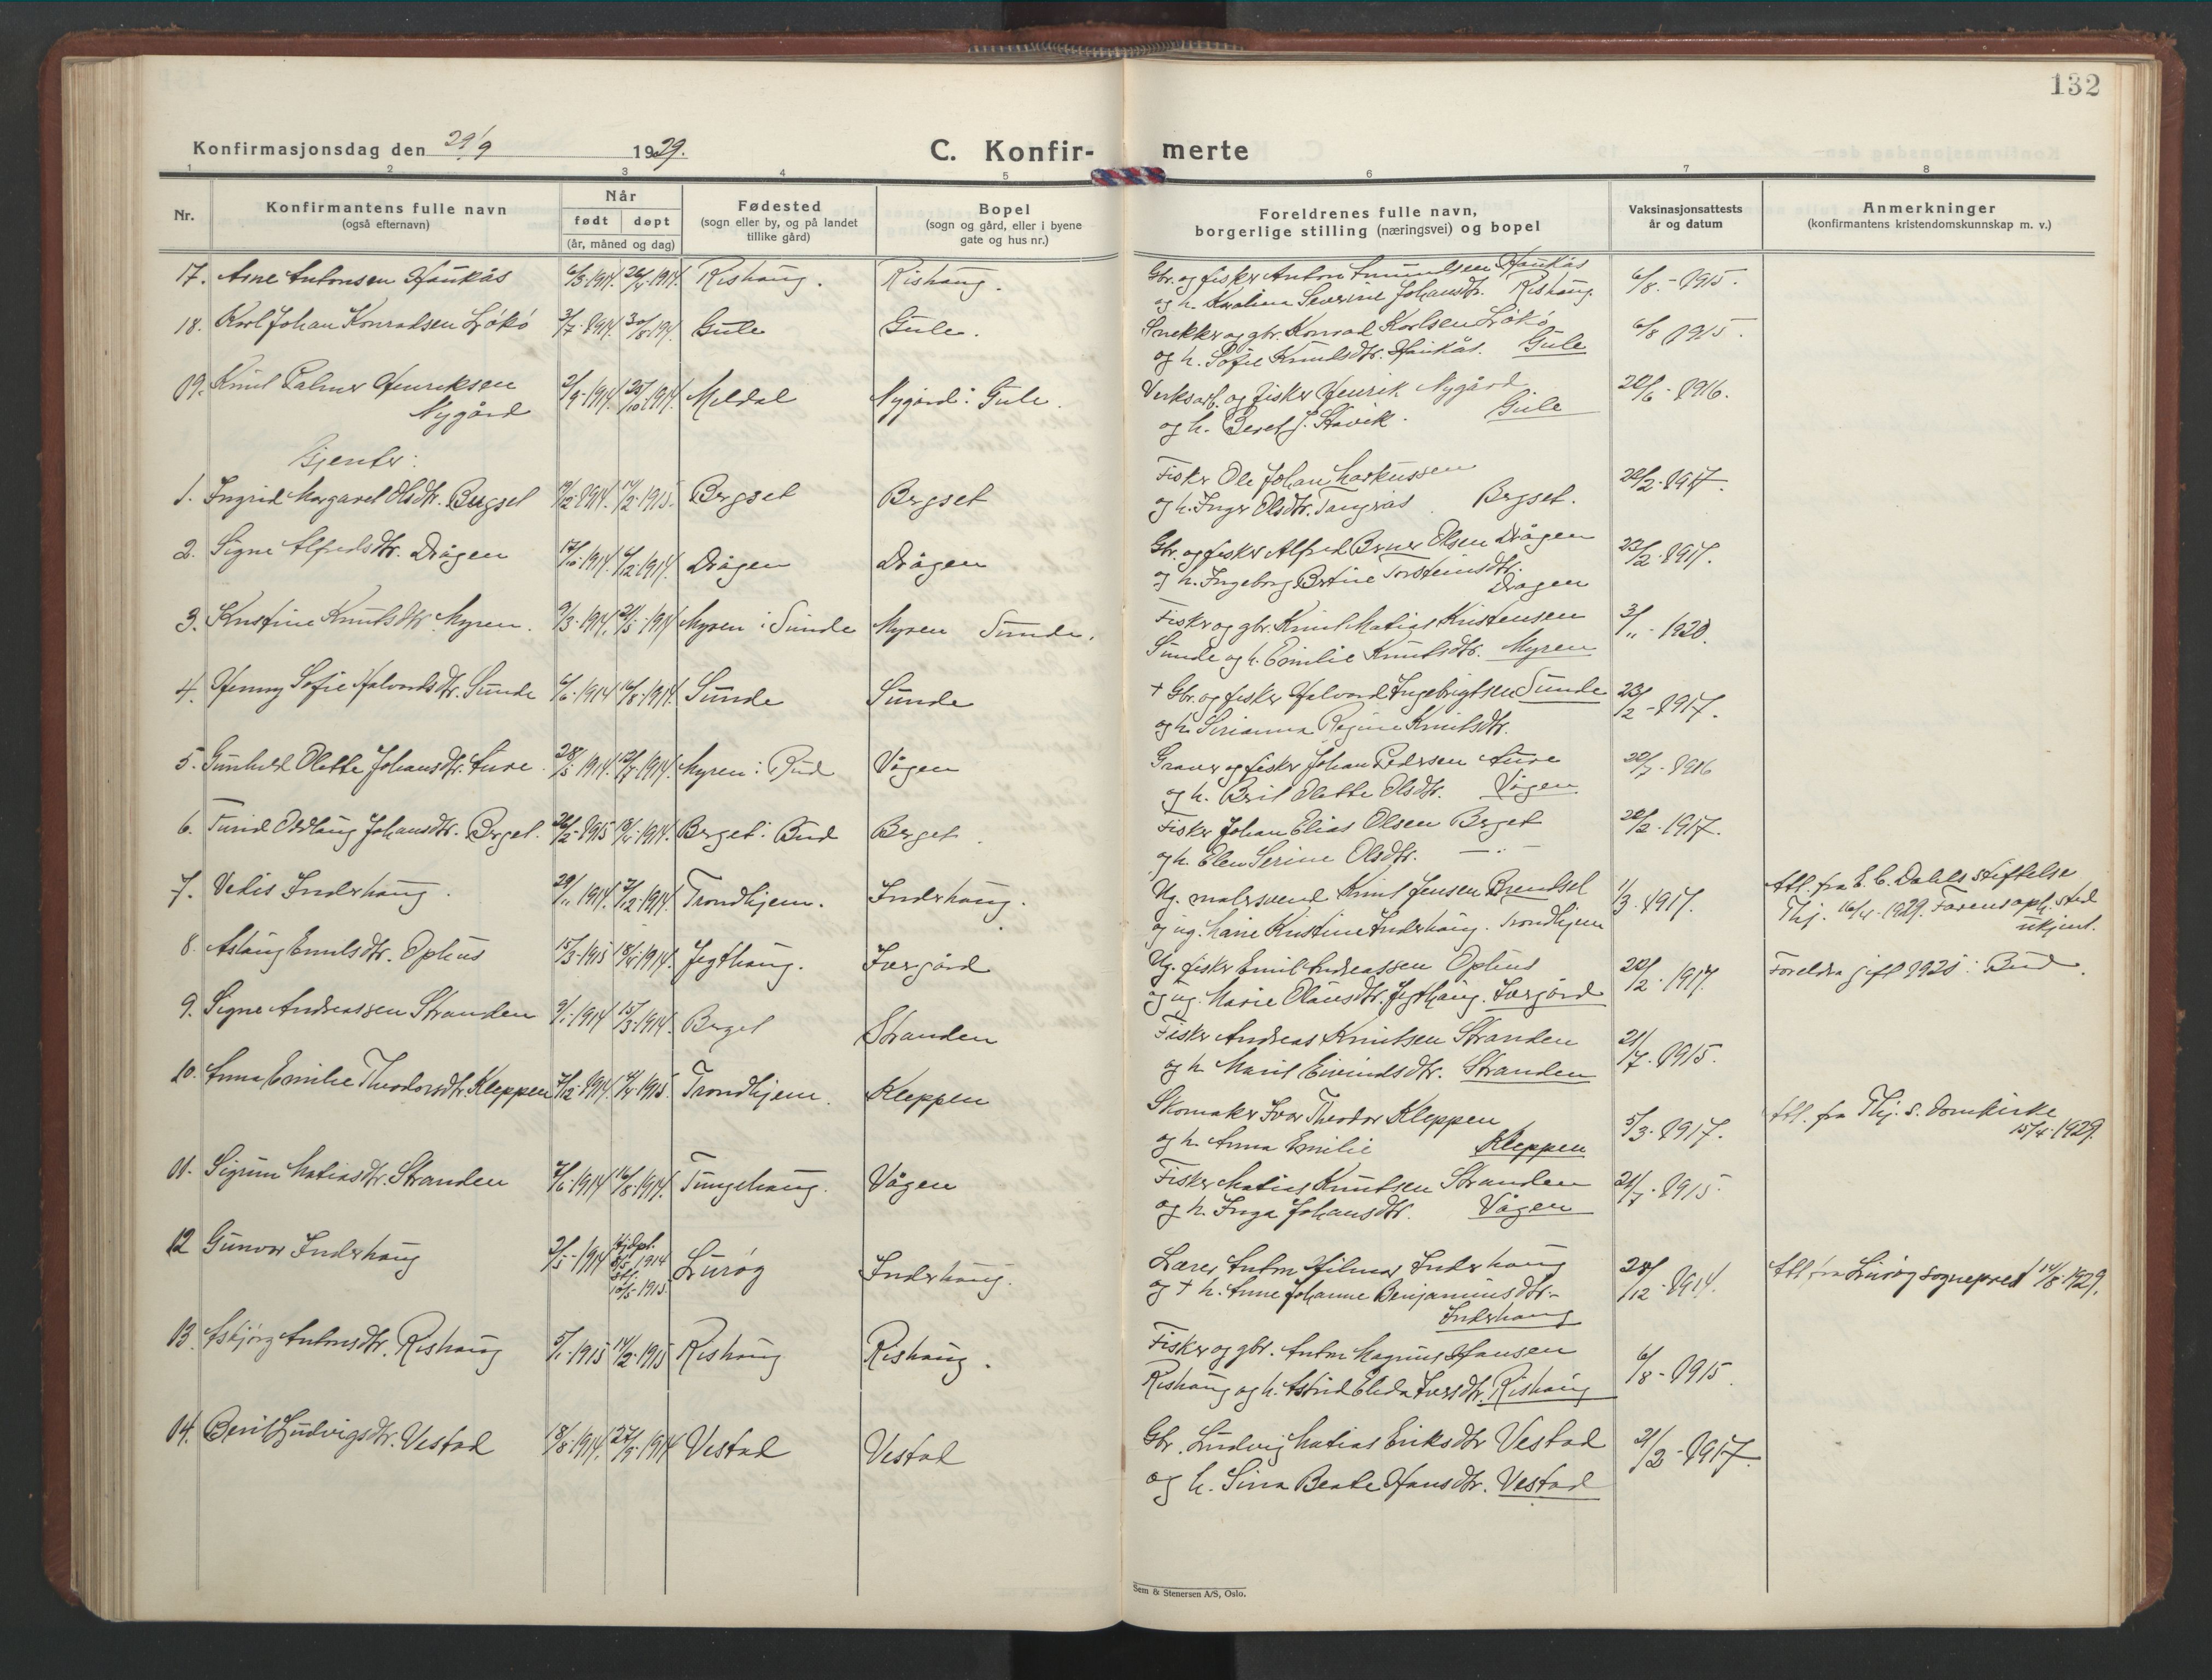 132
Konfirmasjonsdag den 29/9 1929.
C. Konfir- merte
1 2 3 4 5 6 7 8
Nr.
Konfirmantens fulle navn
(også efternavn)
Når
født døpt
(år, måned og dag)
Fødested
(sogn eller by, og på landet
tillike gård)
Bopel
(sogn og gård, eller i byene
gate og hus nr.)
Foreldrenes fulle navn,
borgerlige stilling (næringsvei) og bopel
Vaksinasjonsattests
år og datum
Anmerkninger
(konfirmantens kristendomskunnskap m. v.)
17. Arne Antonsen Haukås 6/3-1914. 26/4-1914. Rishaug. Rishaug.
Gbr. og fisker Anton Haukås
og h. Severine Johansdtr. Rishaug. 6/8-1915.
18. Karl Johan Konradsen 3/7-1914. 30/8-1914. Gule Gule.
Snekker og gbr. Konrad Karlsen
og h. Sofie Knudsdtr. Haukås. Gule 6/8 1915.
19. Knut Palmer Henriksen
Nygård 2/9-1914. 25/10-1914. Meldal Nygård i Gule.
Verksarb. og fisker Henrik Nygård
og h. Beret J. Gule 20/6-1916.
Gjenter:
1. Ingrid Margaret Olsdtr. Bergset 14/2-1915. Bergset Bergset
Fisker Ole Johan Markussen
og h. Inger Olsdtr. Bergset. 20/2-1917.
2. Signe Alfredsdtr. Drågen 6/12-1914. Drågen Drågen
Gbr. og fisker Alfred Olsen Drågen
og h. Ingeborg Torsteinsdtr.
Drågen 23/2-1917.
3. Kristine Knutsdtr. Myren. 9/3-1914. 21/5-1914 Myren i Sunde Myren Sunde.
Fisker og gbr. Knut Matias Kristensen
Sunde og h. Emilie Knutsdtr. Myren 3/11-1920.
4. Jenny Sofie Halvordsdtr. Sunde 6/6-1914 16/8-1914. Sunde Sunde
+ Gbr. og fisker Halvord Ingebrigtsen Sunde
og h. Regine Knutsdtr. 23/2-1917.
5. Gunhild Olette Johansdtr. Aure. 28/5 1914. 12/7-1914. Myren i Bud Vågen
og fisker Johan Pedersen Aure
og h. Berit Olette Olsdtr. Vågen 20/7-1916
6. Turid Oddlaug Johansdtr. Berget. Berget i Bud Berget.
Fisker Johan Elias Olsen Berget
og h. Elen Serine Olsdtr. 20/2-1917.
7. Vedis Inderhaug. 29/11 1914. 7/12-1914. Trondhjem. Inderhaug.
Ug. malersvend Knut Jensen
og ug. Marie Kristine Inderhaug. Trondhjem 1/3-1917.
Att. fra E. C. Dahls stiftelse
Thj. 16/4-1929. Farens oph. sted
ukjent.
8. Aslaug Emilsdtr. Ophus 15/3-1915 18/4-1914. Jegthaug. Iversgård
Ug. fisker Emil Andreassen Ophus
og ug. Marie Olausdtr. Jegthaug. 20/2-1917.
Foreldra gift 1925 i Bud.
9. Signe Andreassen Stranden 9/1-1914 15/3-1914. Berget Stranden
Fisker Andreas Knutsen Stranden
og h. Marit Eivindsdtr. Stranden 21/7-1915.
10. Anna Emilie Theodorsdtr. Kleppen 7/12-1914. 4/4-1915. Trondhjem. Kleppen
Skomaker Ivar Theodor Kleppen
og h. Anna Emilie Kleppen 5/3-1917.
Att. fra Thj.s. Domkirke
15/4-1929.
11. Sigrun Matiasdtr. Stranden 7/6-1914 16/8-1914. Tungehaug. Vågen
Fisker Matias Knutsen Stranden
og h. Inga Johansdtr. Vågen 21/7-1915.
12 Gunvor Inderhaug 2/5-1914 Hjdpt. 1914 Lurøy Inderhaug.
Lærer Anton Hilmar Inderhaug
og + h. Anne Johanne Benjaminsdtr.
Inderhaug 28/12-1914.
Att. fra Lurøy sogneprest 14/8-1929.
13. Asbjørg Antonsdtr. Rishaug 5/1-1915 14/2-1915 Rishaug Rishaug.
Fisker og gbr. Anton Magnus Hansen
Rishaug og h. Astrid Elida Iversdtr. Rishaug 6/8-1915.
14. Berit Ludvigsdtr. Vestad 18/8-1914. 27/9-1914 Vestad Vestad
Gbr. Ludvig Matias Eriksdtr Vestad
og h. Sina Beate Hansdtr. Vestad 21/2-1917.
Sem & Stenersen A/S, Oslo.